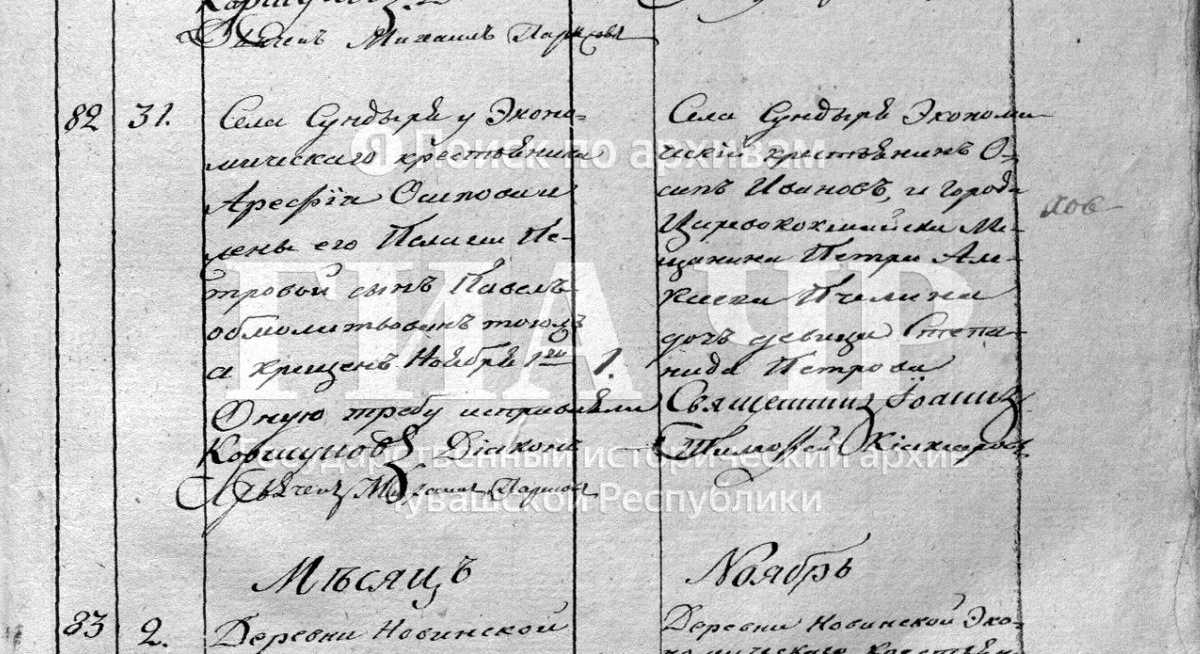 Дьячекъ Михаилъ Парковъ
82 31. Села Сундыря у Эконо-
мическаго крестьянина
Арефія Осипова и
жены его Пелагеи Пе-
тровой сынъ Павелъ
обмолитвованъ того жъ
а крещенъ Ноября 1го 1.
Оную требу исправляли
Коршуновъ Діаконъ
Дьячекъ Михаилъ Парковъ
Села Сундыря Экономи-
ческій крестьянинъ О-
сипъ Ивановъ, и города
Царевококшайска Ме-
щанина Петра Але-
ксеева Пчелина
дочь девица Степа-
нида Петрова
Священникъ Іоаннъ
Тимофей
Мѣсяцъ Ноябрь
83 2. Деревни Новинской
Деревни Новинской Эко-
номическаго
Поиск по архивам
ГИА ЧР
Государственный исторический архив
Чувашской Республики